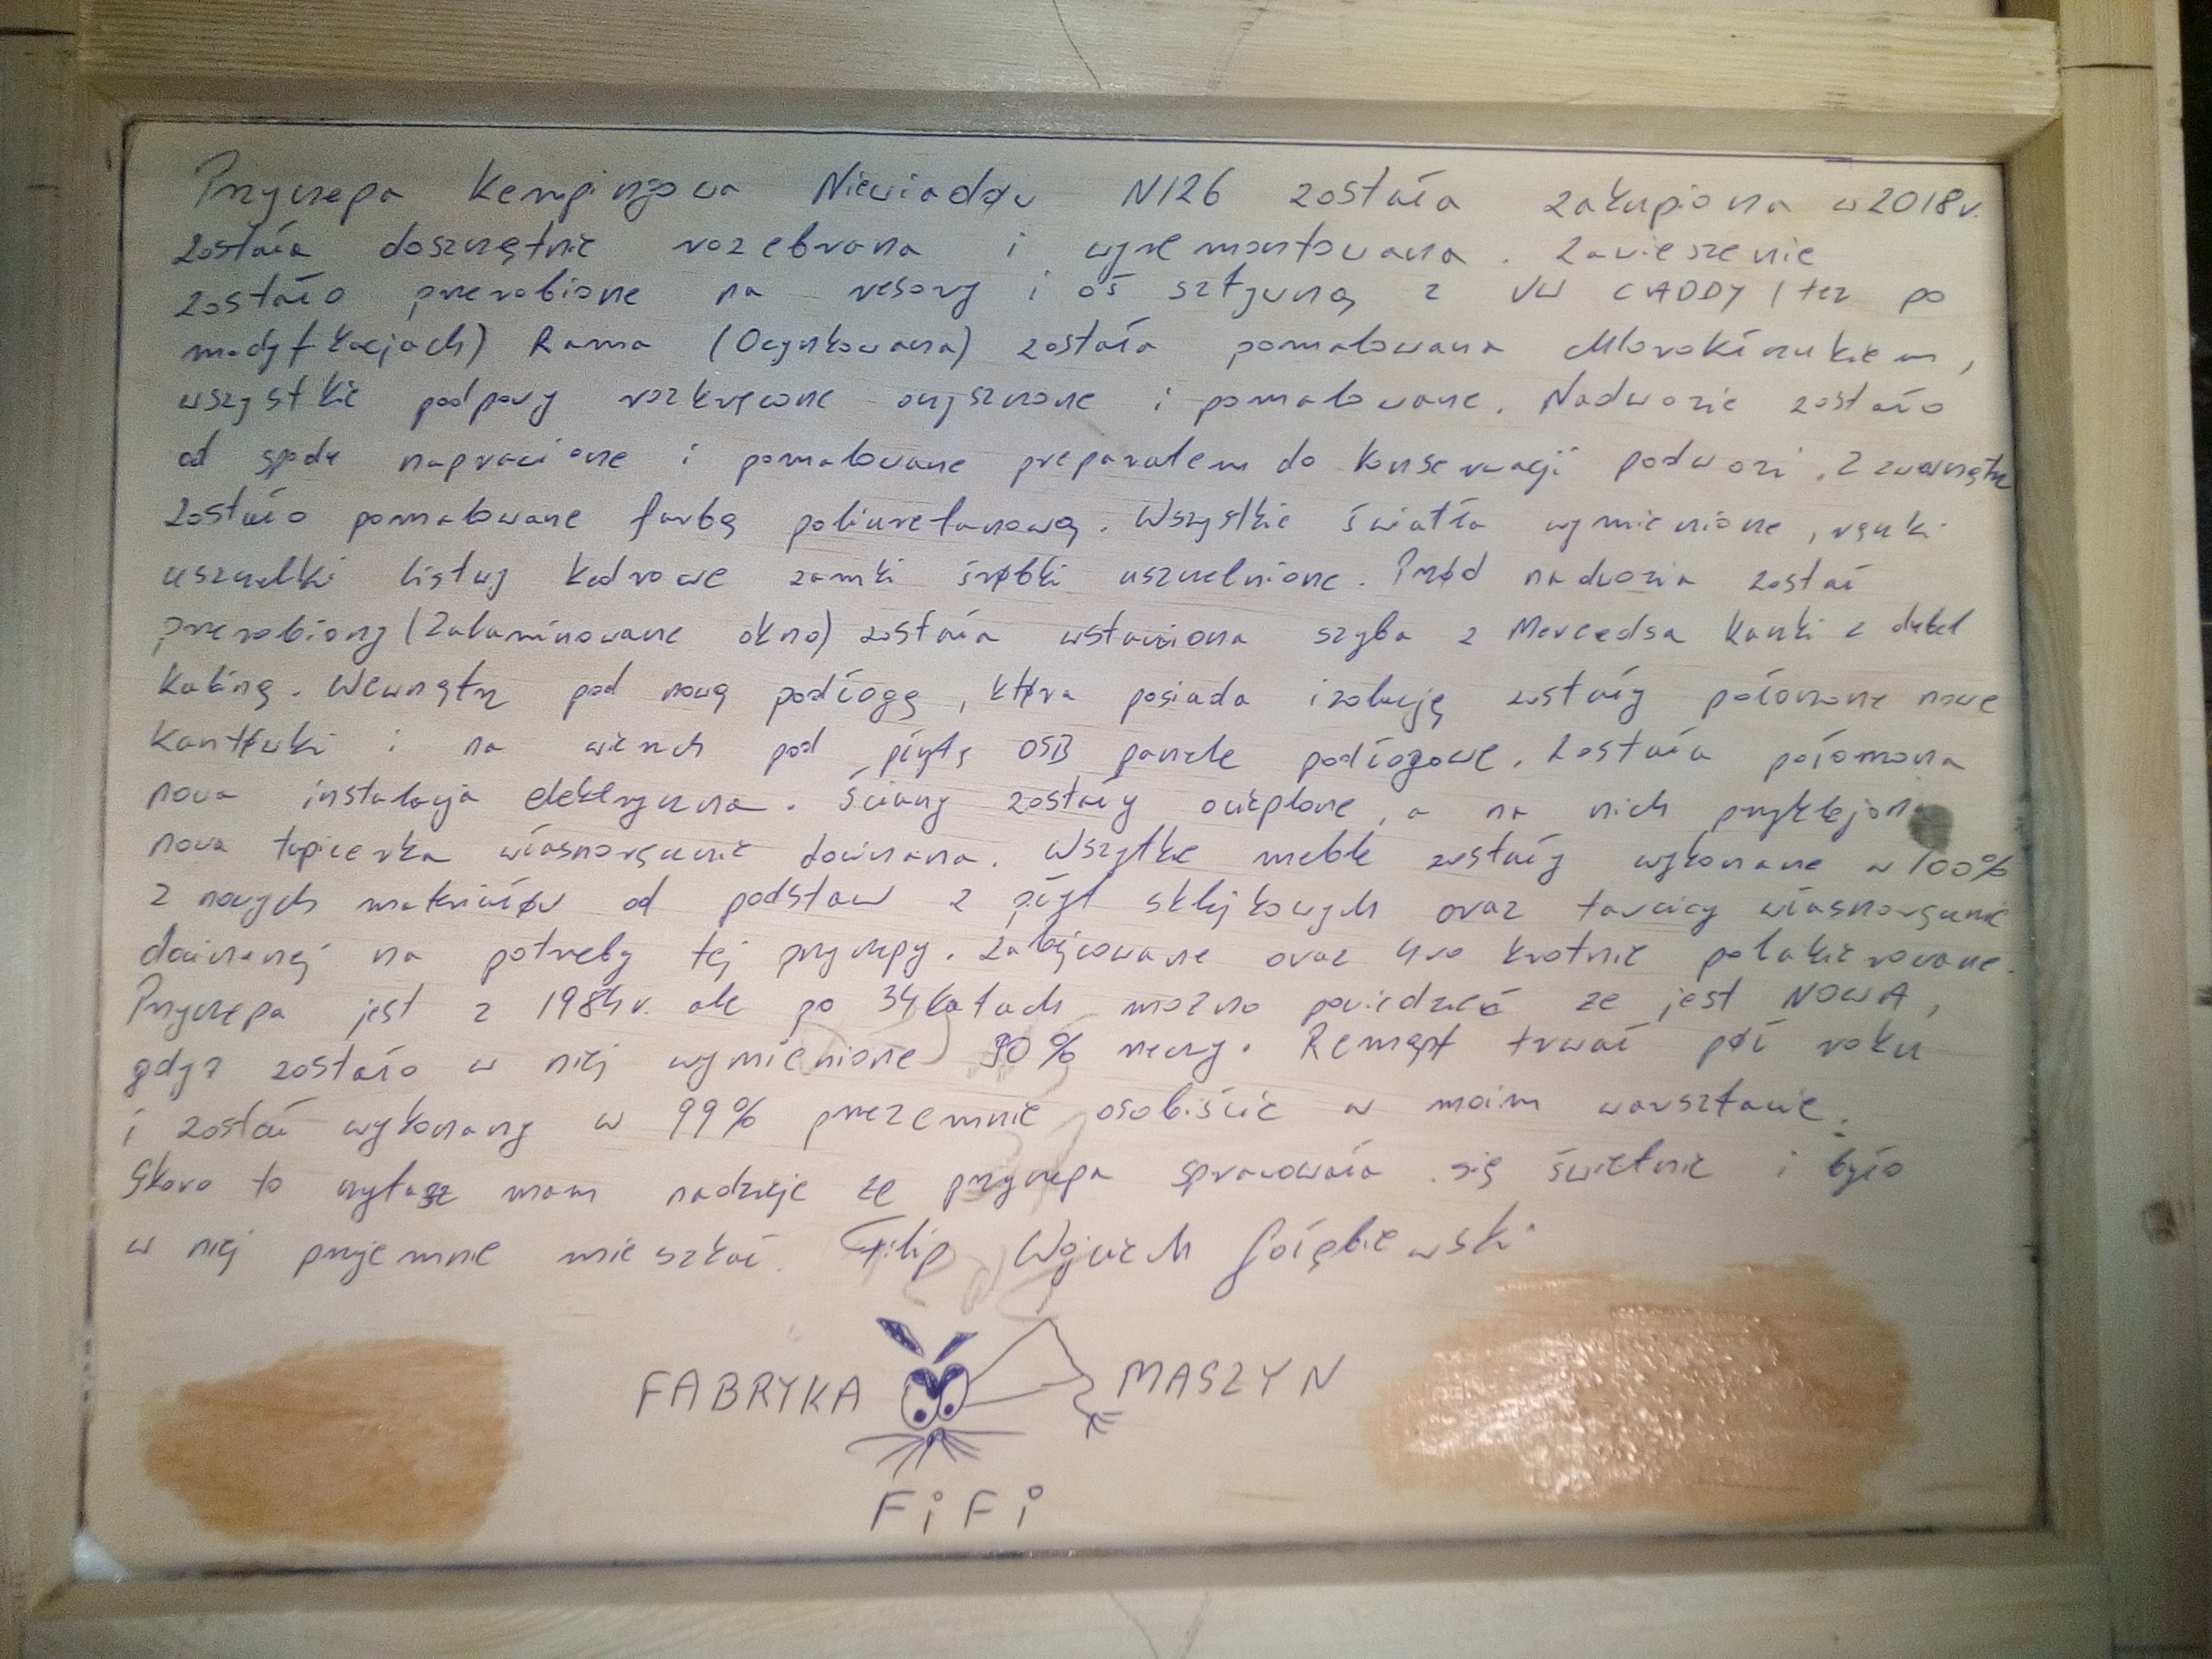 Przyczepa Kempingowa Niewiadów N126 została zakupiona w 2018r.
Została doszczętnie rozebrana i wyremontowana. Zawieszenie
zostało przerobione na resory i oś sztywną z VW CADDY (też po
modyfikacjach) Rama (Ocynkowana) została pomalowana
wszystkie podpory rozkręcone oczyszczone i pomalowane. Nadwozie zostało
od spodu naprawione i pomalowane preparatem do konserwacji podwozi. Z zewnątrz
zostało pomalowane farbą poliuretanową. Wszystkie światła wymienione, rączki
uszczelki listwy kedrowe zamki śróbki uszczelnione. Przód nadwozia został
przerobiony (Zalaminowane okno) została wstawiona szyba z Mercedsa Kaczki z dubel
kabiną. Wewnątrz pod nową podłogą, która posiada izolację zostały położone nowe
kantówki i na wierzch pod płytę OSB panele podłogowe. Została położona
nowa instalacja elektryczna. Ściany zostały ocieplone, a na nich przyklejona
nowa tapicerka własnoręcznie docinana. Wszytkie meble zostały wykonane w 100%
z nowych materiałów od podstaw z płyt sklejkowych oraz tarcicy własnoręcznie
docinanej na potrzeby tej przyczepy. Zabejcowane oraz 4ro krotnie polakierowane.
Przyczepa jest z 1984r. ale po 34 latach można powiedzieć że jest NOWA,
gdyż zostało w niej wymienione 90% rzeczy. Remąt trwał pół roku
i został wykonany w 99% przezemnie osobiście w moim warsztacie.
Skoro to czytasz mam nadzieje że przyczepa sprawowała się świetnie i było
w niej przyjemnie mieszkać. Filip Wojciech Gołębiewski
FABRYKA MASZYN
FiFi